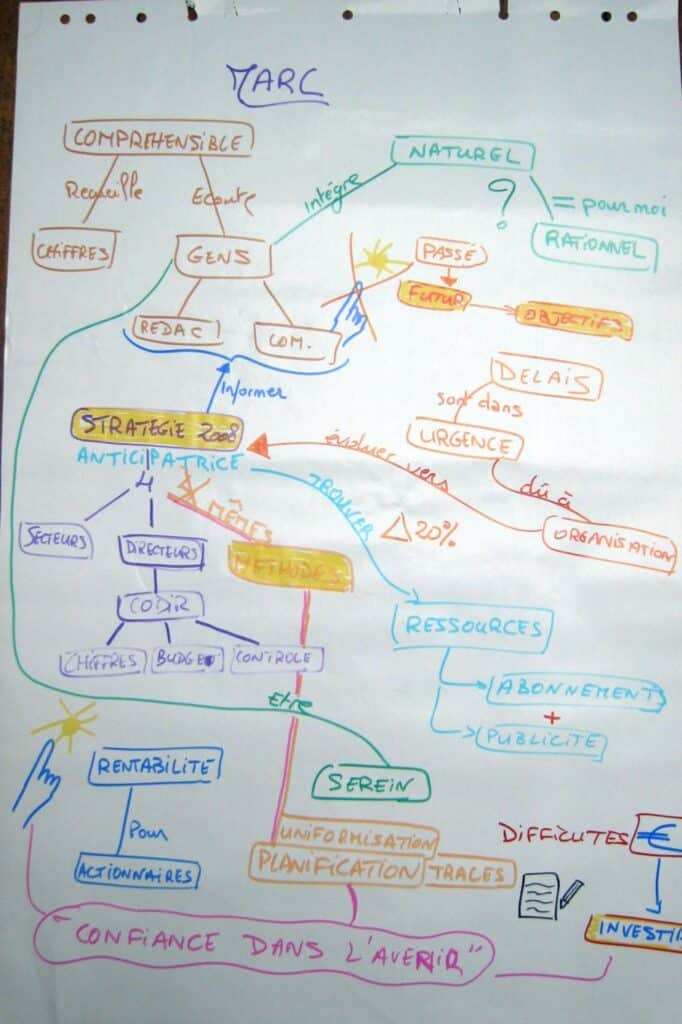 MARC
COMPREHENSIBLE
Recueille
Ecoute
CHIFFRES
GENS
REDAC
COM.
Informer
Intégre
NATUREL
?
= pour moi
RATIONNEL
PASSÉ
FUTUR
OBJECTIFS
DELAIS
sont dans
URGENCE
dû à
ORGANISATION
évoluer vers
STRATEGIE 2008
ANTICIPATRICE
4
SECTEURS
DIRECTEURS
CODIR
CHIFFRES
BUDGET
CONTROLE
MÊMES
METHODES
TROUVER
20%
RESSOURCES
ABONNEMENT
+
PUBLICITE
Etre
SEREIN
RENTABILITE
Pour
ACTIONNAIRES
UNIFORMISATION
PLANIFICATION
TRACES
DIFFICUTES
€
INVESTI
"CONFIANCE DANS L'AVENIR"